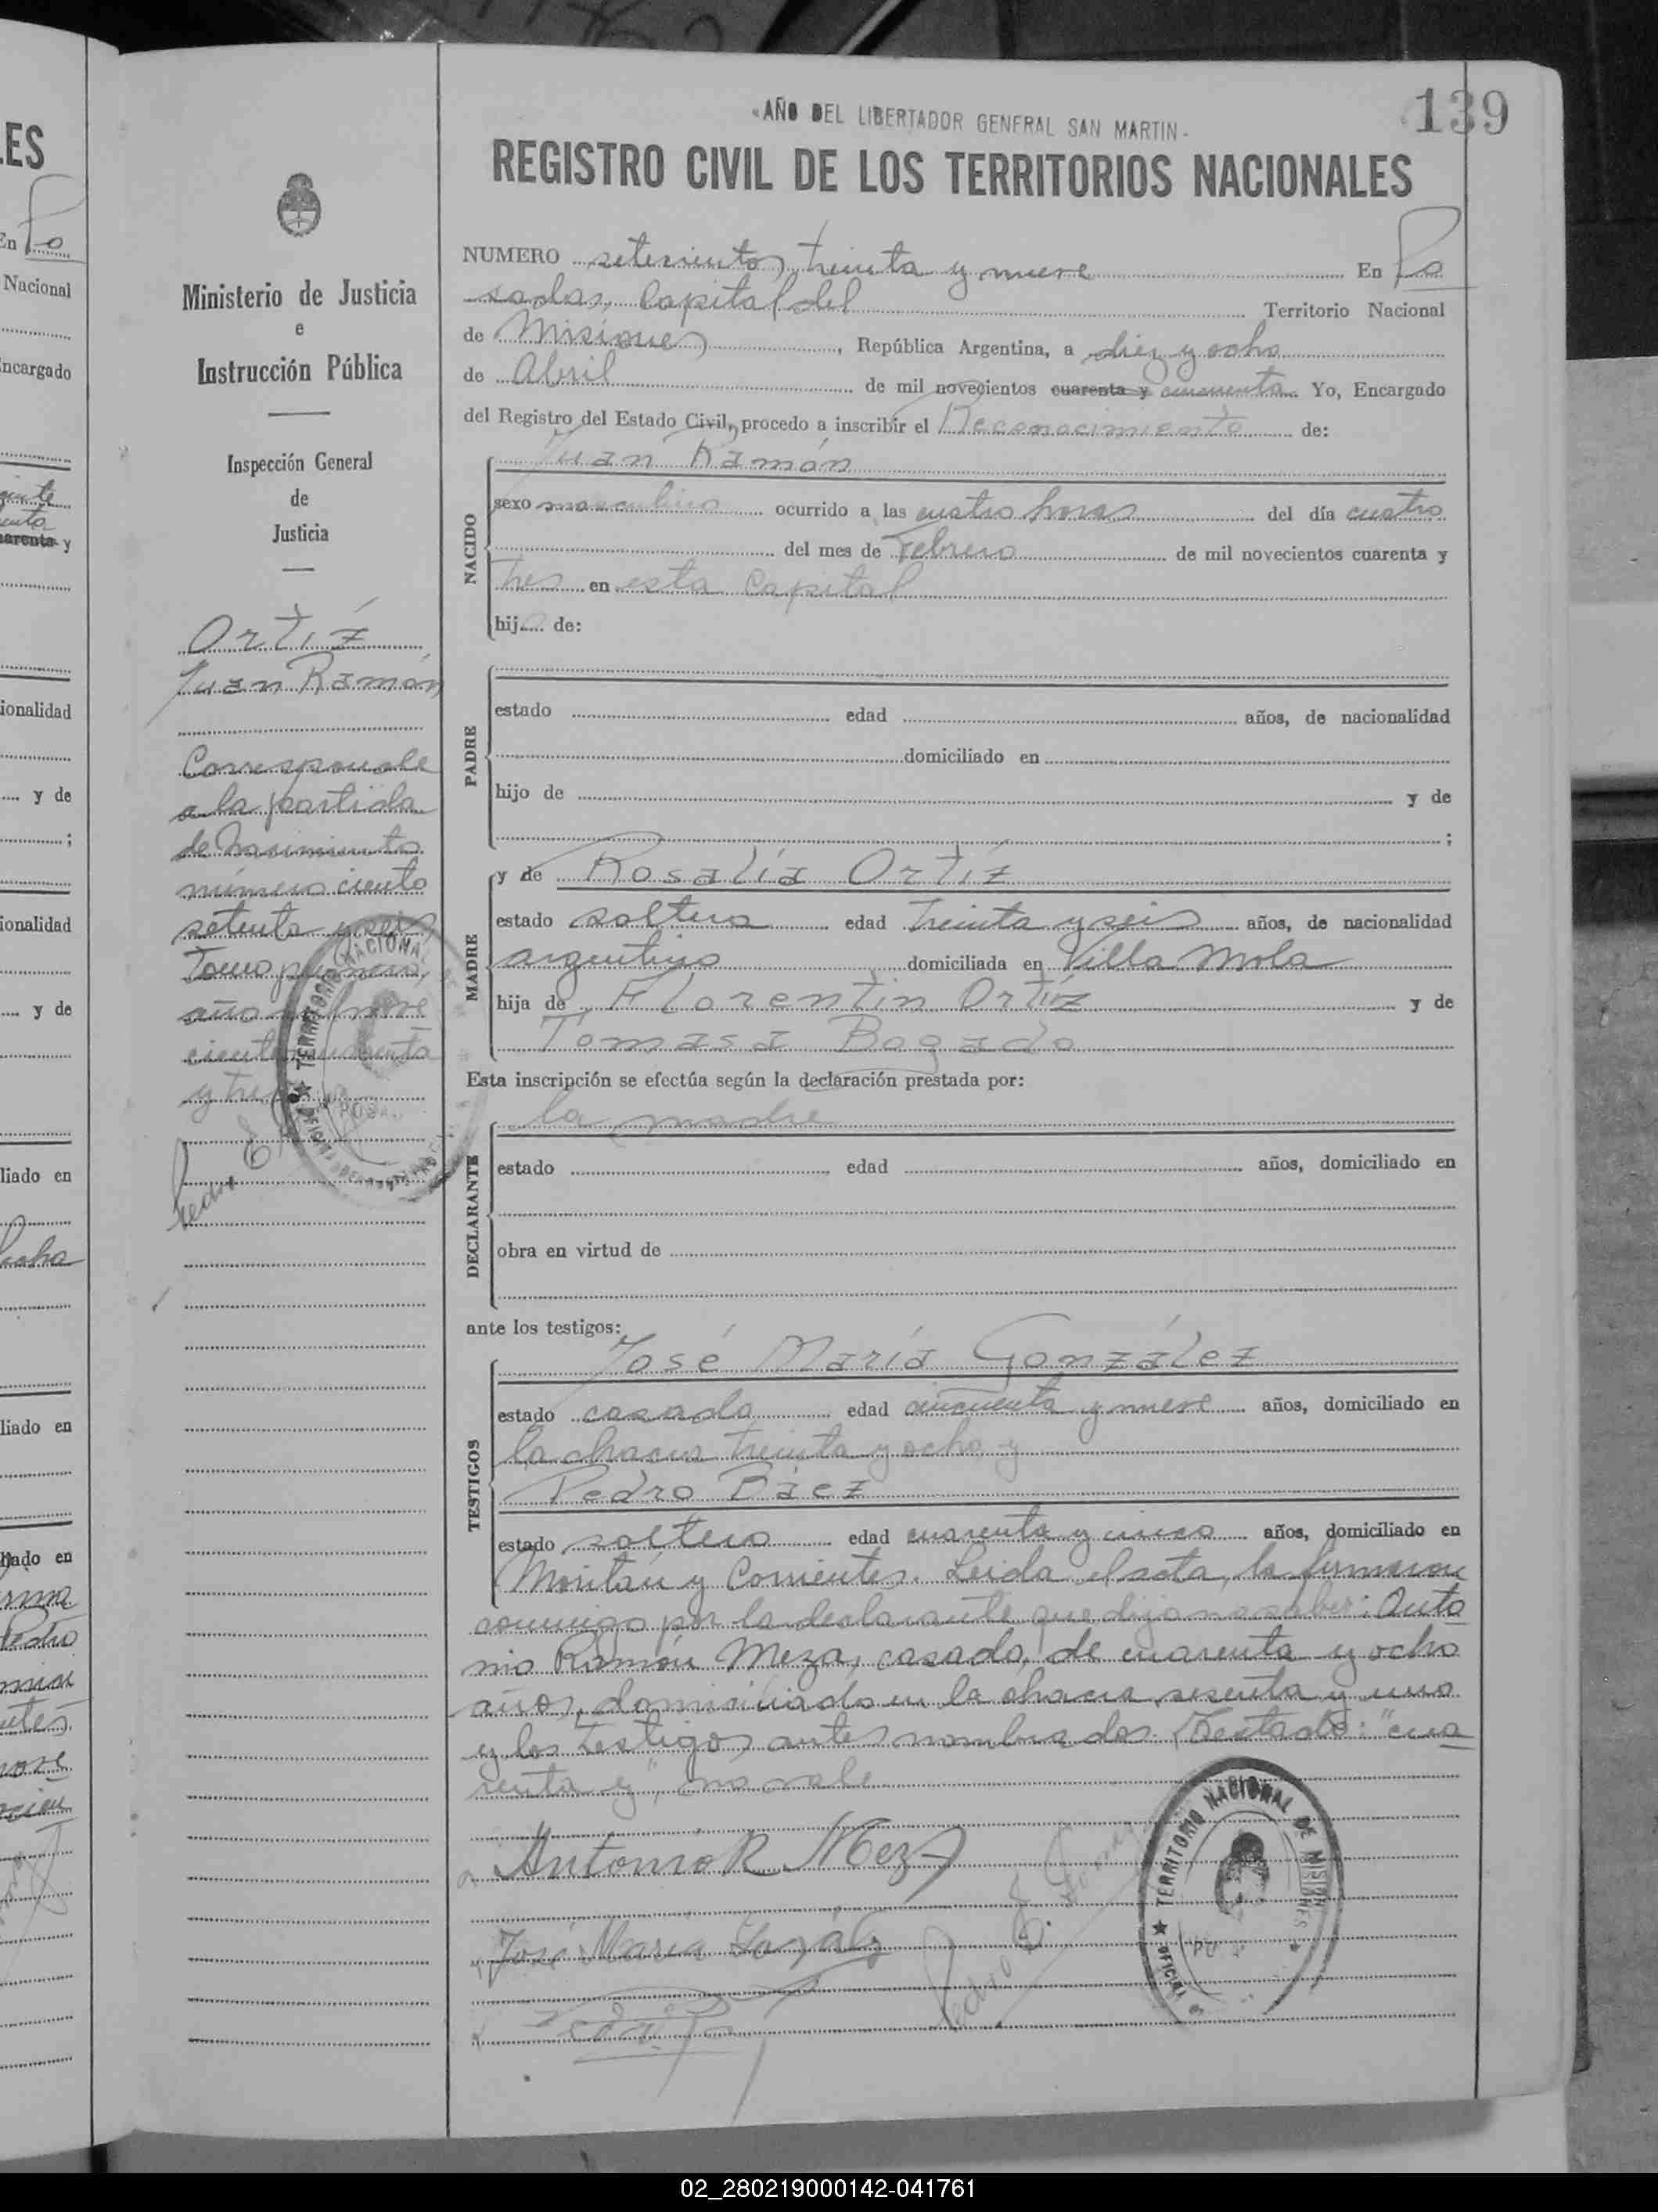 139
«AÑO DEL LIBERTADOR GENERAL SAN MARTIN»
REGISTRO CIVIL DE LOS TERRITORIOS NACIONALES
NUMERO setecientos treinta y nueve En Po
sadas, Capital del Territorio Nacional
de Misiones, República Argentina, a diez y ocho
de Abril de mil novecientos cuarenta y cincuenta. Yo, Encargado
del Registro del Estado Civil, procedo a inscribir el Reconocimiento de:
NACIDO
Juan Ramón
sexo masculino ocurrido a las cuatro horas del día cuatro
del mes de Febrero de mil novecientos cuarenta y
tres en esta Capital
hijo de:
PADRE
estado edad años, de nacionalidad
domiciliado en
hijo de y de
;
MADRE
y de Rosalía Ortíz
estado soltera edad treinta y seis años, de nacionalidad
argentina domiciliada en Villa Mola
hija de Florentín Ortíz y de
Tomasa Bogado
Esta inscripción se efectúa según la declaración prestada por:
DECLARANTE
la madre
estado edad años, domiciliado en
obra en virtud de
ante los testigos:
TESTIGOS
José María González
estado casado edad cincuenta y nueve años, domiciliado en
la chacra treinta y ocho y
Pedro Báez
estado soltero edad cuarenta y cinco años, domiciliado en
Moritán y Corrientes. Leida el acta, la firmaron
conmigo por la declarante que dijo no saber: Anto
nio Ramón Meza, casado, de cuarenta y ocho
años, domiciliado en la chacra sesenta y uno
y los testigos antes nombrados. Testado: "cua
renta y", no vale
Antonio R Meza
José María
TERRITORIO NACIONAL DE MISIONES
Ministerio de Justicia
e
Instrucción Pública
Inspección General
de
Justicia
Ortíz
Juan Ramón
Corresponde
a la partida
de Nacimiento
número ciento
setenta y seis
Tomo primero,
año mil nove
cientos cuarenta
y tres
Pedro
TERRITORIO NACIONAL
ES
En Po
Nacional
Encargado
cuarenta y
ionalidad
y de
;
ionalidad
y de
liado en
liado en
liado en
Pedro
02_280219000142-041761